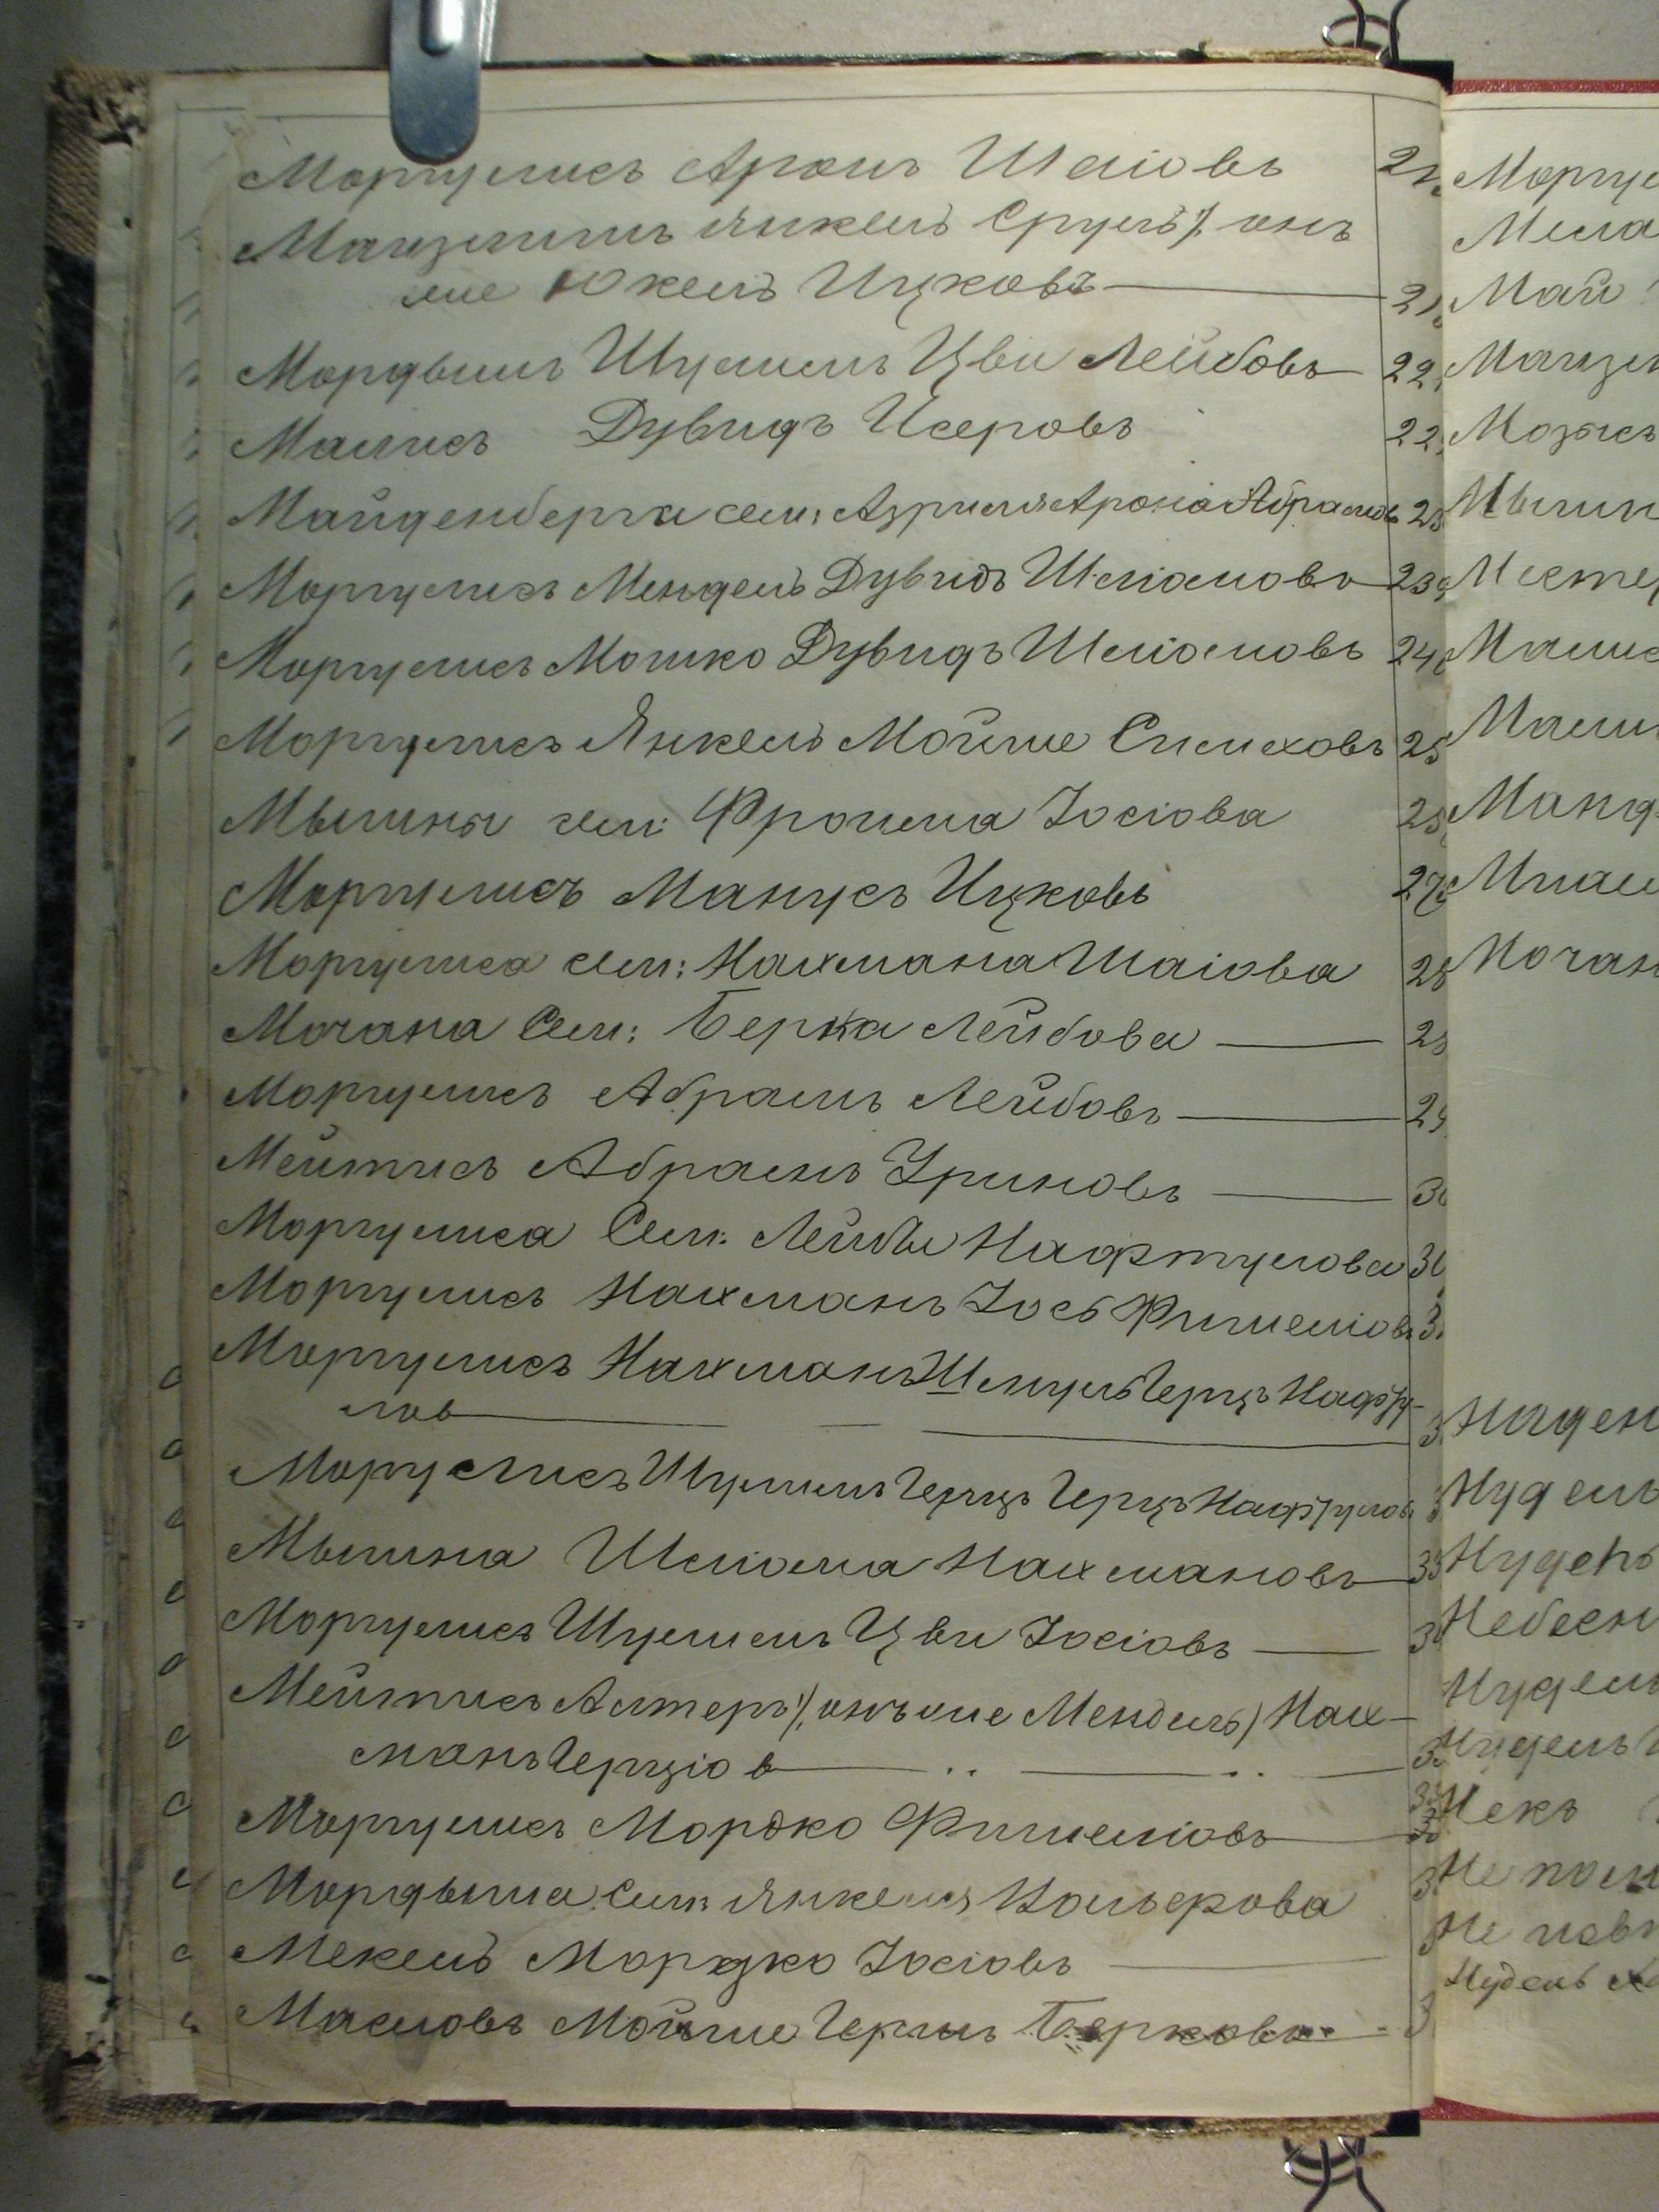 Моргулисъ Аронъ Шаіовъ 21
Майзлишъ Янкель Сруль /: онъ
же Юкель Ицковъ 21
Мордышъ Шулимъ Цви Лейбовъ 22
Малисъ Дувидъ Исеровъ 22
Майденберга сем: Азриля Арона Абрамов 23
Моргулисъ Мендель Дувидъ Шліомовъ 239
Моргулисъ Мошко Дувидъ Шліомовъ 24
Моргулисъ Янкель Мойше Симховъ 25
Мылины сем: Фроима Іосіова 25
Моргулисъ Манусъ Ицковъ 27
Моргулиса сем: Нахмана Шаіова 28
Мочана Сем: Берка Лейбова 28
Моргулисъ Абрамъ Лейбовъ 29
Мейтисъ Абрамъ Уриновъ 30
Моргулиса Сем: Лейбы Нафтулова 30
Моргулисъ Нахманъ Іосъ Фишеліов 3
Моргулисъ Нахманъ Шмуль Герцъ Нафту-
лов 3
Моргулисъ Шулимъ Герцъ Герцъ Нафтулов
Мылина Шліома Нахмановъ 33
Моргулисъ Шулимъ Цви Іосіовъ 3
Мейтисъ Алтеръ /: онъ же Мендель) Нах-
манъ Герціов 3
Моргулисъ Мордко Фишеліовъ 33
Мордыша Сем: Янкеля Вольфова 3
Мекель Мордко Іосіовъ
Масловъ Мойше Герш Берковъ 3
Моргул
Мела
Май
Майзл
Мозысъ
Мылин
Местер
Малис
Мали
Манд
Мочан
Наден
Нудель
Нудель
Небесн
Нудель
Нудель
Некъ
Непом
Нудель